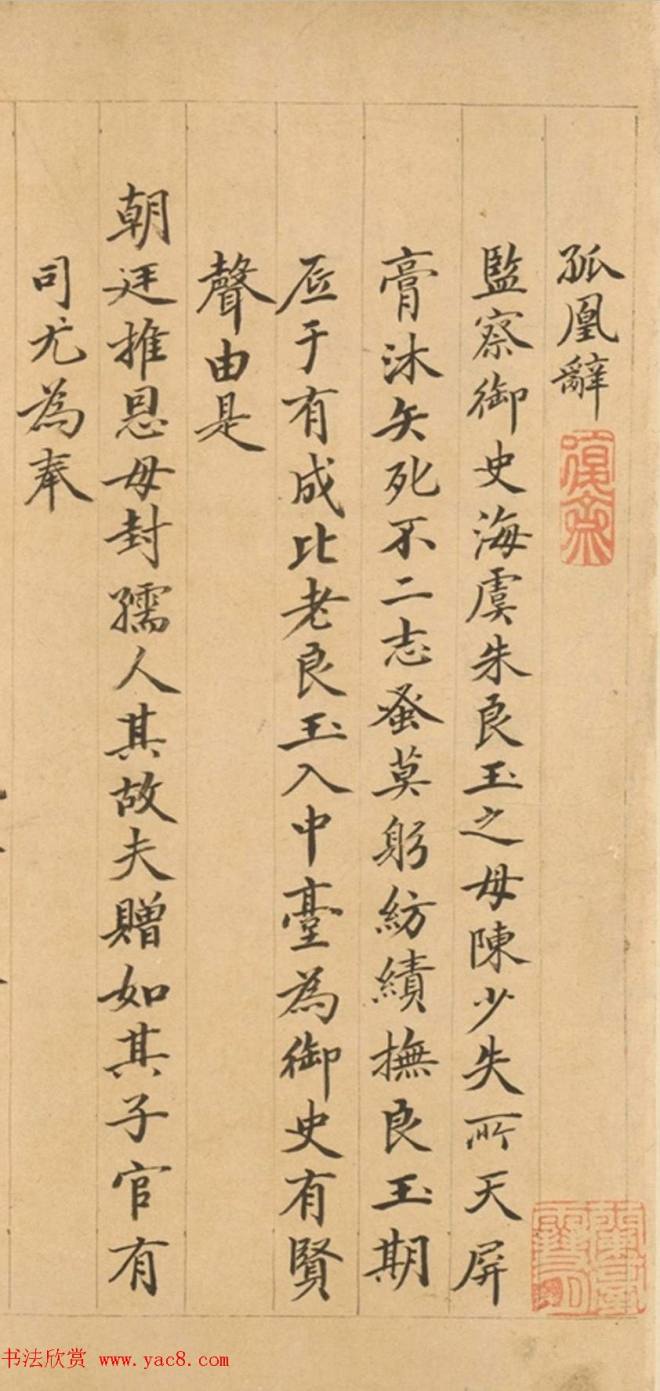 孤凰辭
監察御史海虞朱良玉之母陳少失所天屏
膏沐矢死不二志蚤莫躬紡績撫良玉期
底于有成比老良玉入中臺為御史有賢
聲由是
朝廷推恩母封孺人其故夫贈如其子官有
司尤為奉
书法欣赏 www.yac8.com